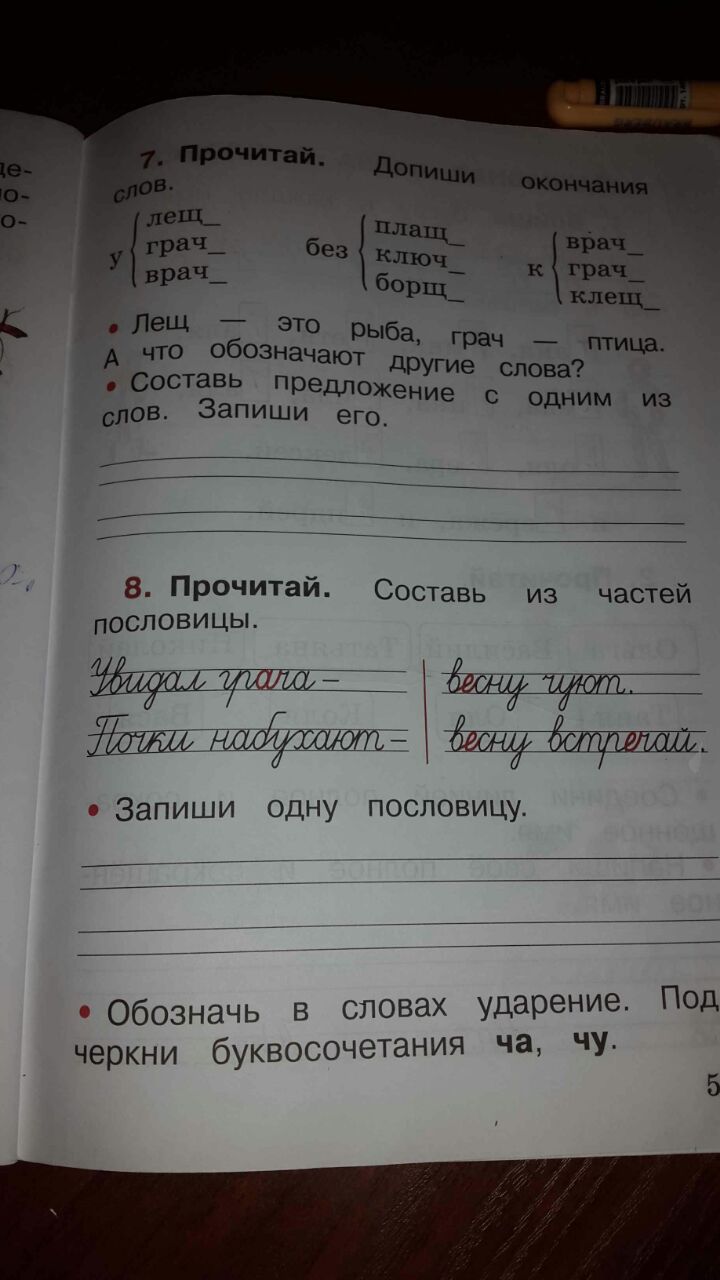 де-
ло-
о-
7. Прочитай. Допиши окончания
слов.
у лещ_ грач_ врач_
без плащ_ ключ_ борщ_
к врач_ грач_ клещ_
• Лещ — это рыба, грач — птица.
А что обозначают другие слова?
• Составь предложение с одним из
слов. Запиши его.
8. Прочитай. Составь из частей
пословицы.
Увидал грача – весну чуют.
Почки набухают – весну встречай.
• Запиши одну пословицу.
• Обозначь в словах ударение. Под
черкни буквосочетания ча, чу.
5